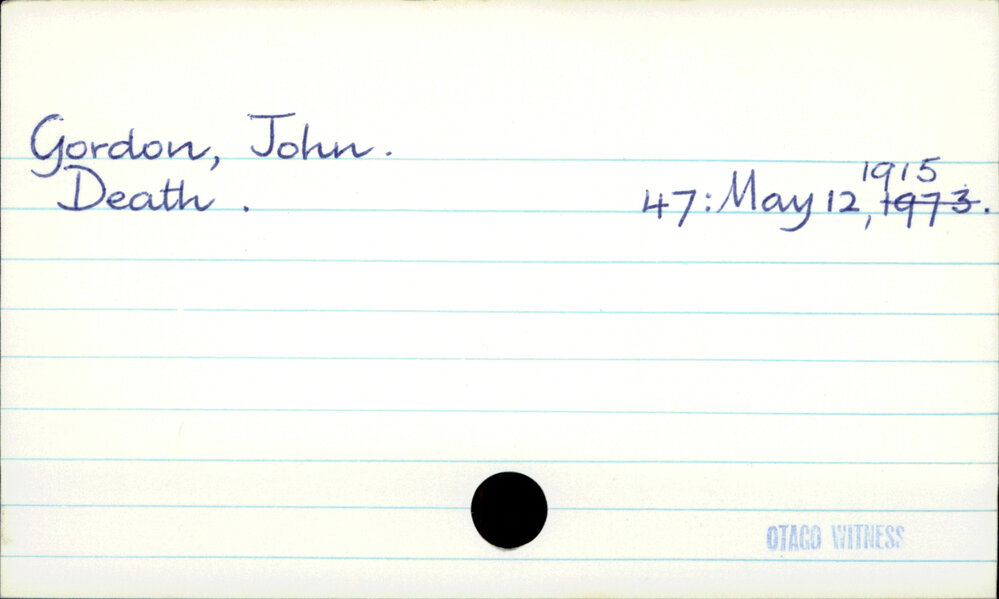 Gordon, John.
Death. 47: May 12, 1915 1973.
OTAGO WITNESS